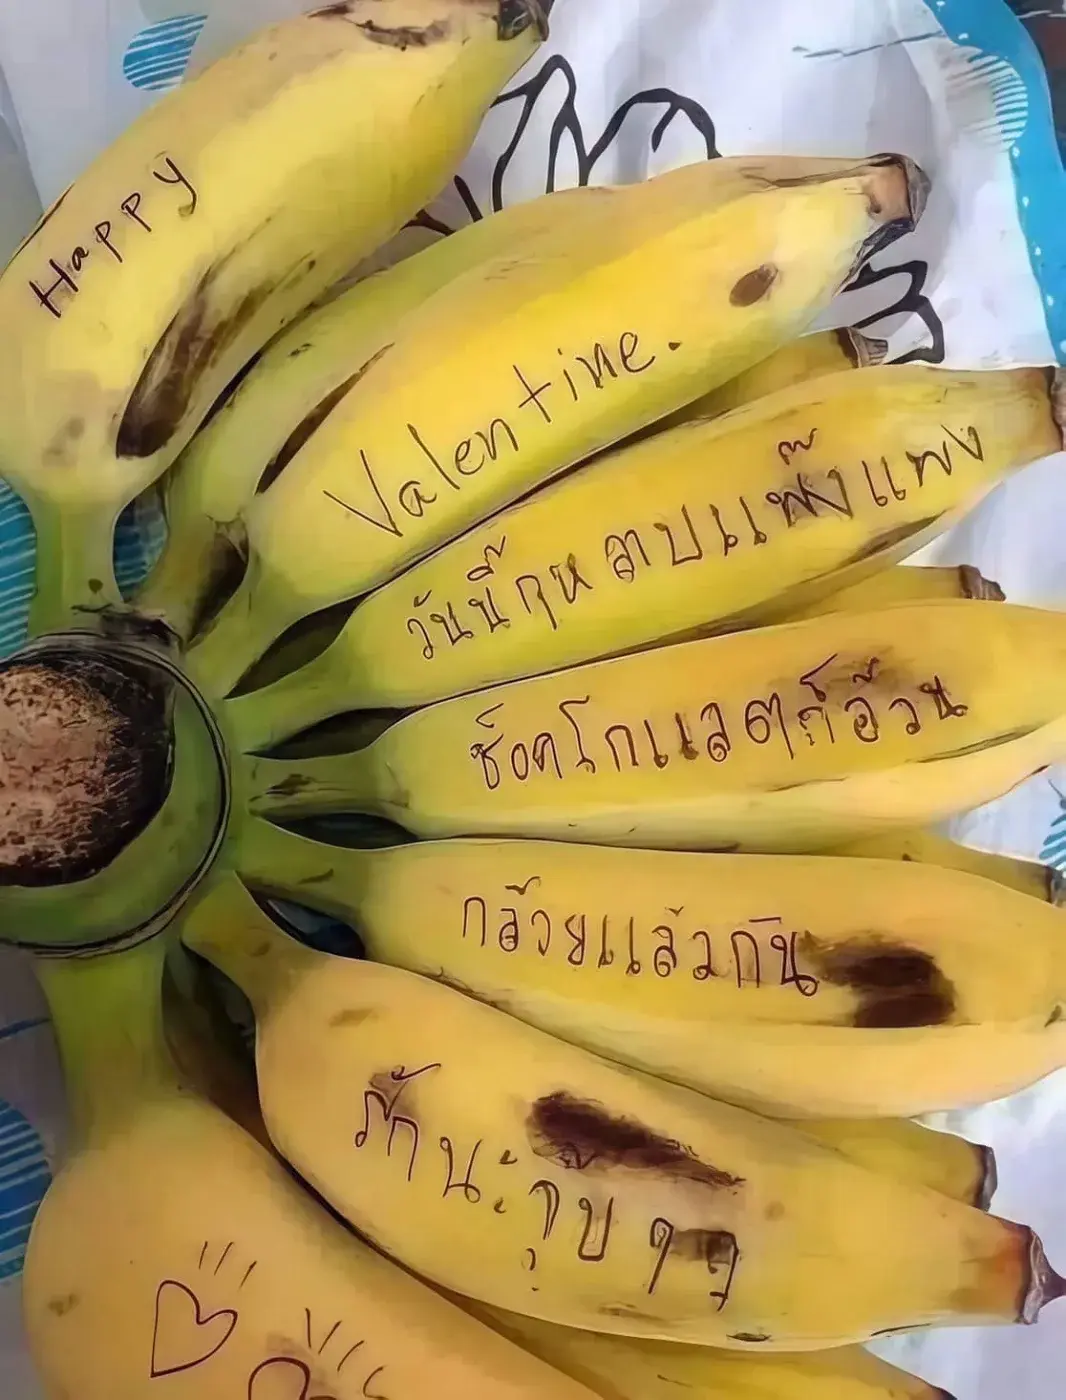 Happy
Valentine.
วันนี้กุหลาบแพ๊งแพง
ช็อคโกแลตก็อ้วน
กล้วยแล้วกัน
รักนะจุ๊บ ๆ ๆ